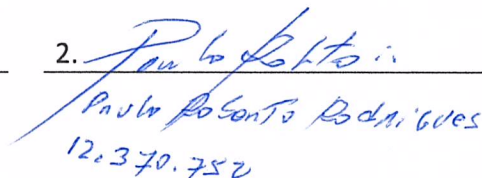 2. Paulo Roberto
Paulo Roberto Rodrigues
12.370.752